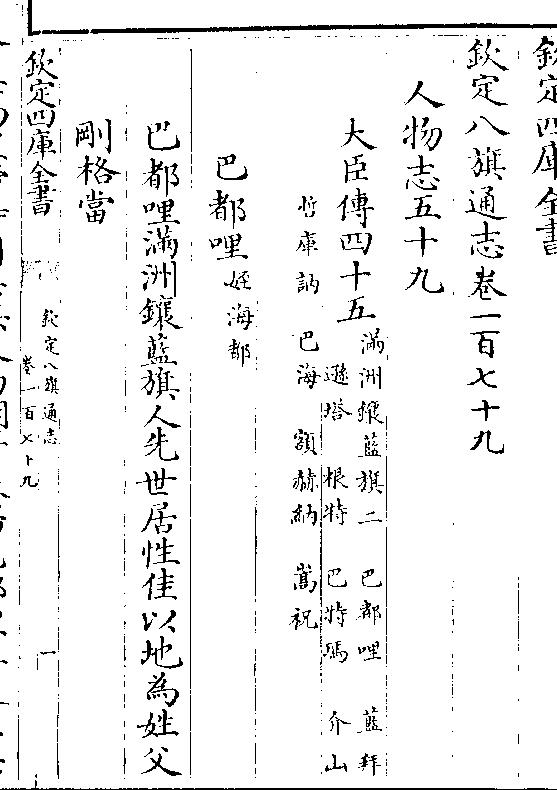 欽定四庫全書
欽定八旗通志卷一百七十九
人物志五十九
大臣傳四十五
滿洲鑲藍旗二 巴都哩 藍拜
遜塔 根特 巴特瑪 介山
哲庫訥 巴海 額赫納 嵩祝
巴都哩 姪海都
巴都哩滿洲鑲藍旗人先世居性佳以地為姓父
剛格當
欽定四庫全書
欽定八旗通志
卷一百七十九
一